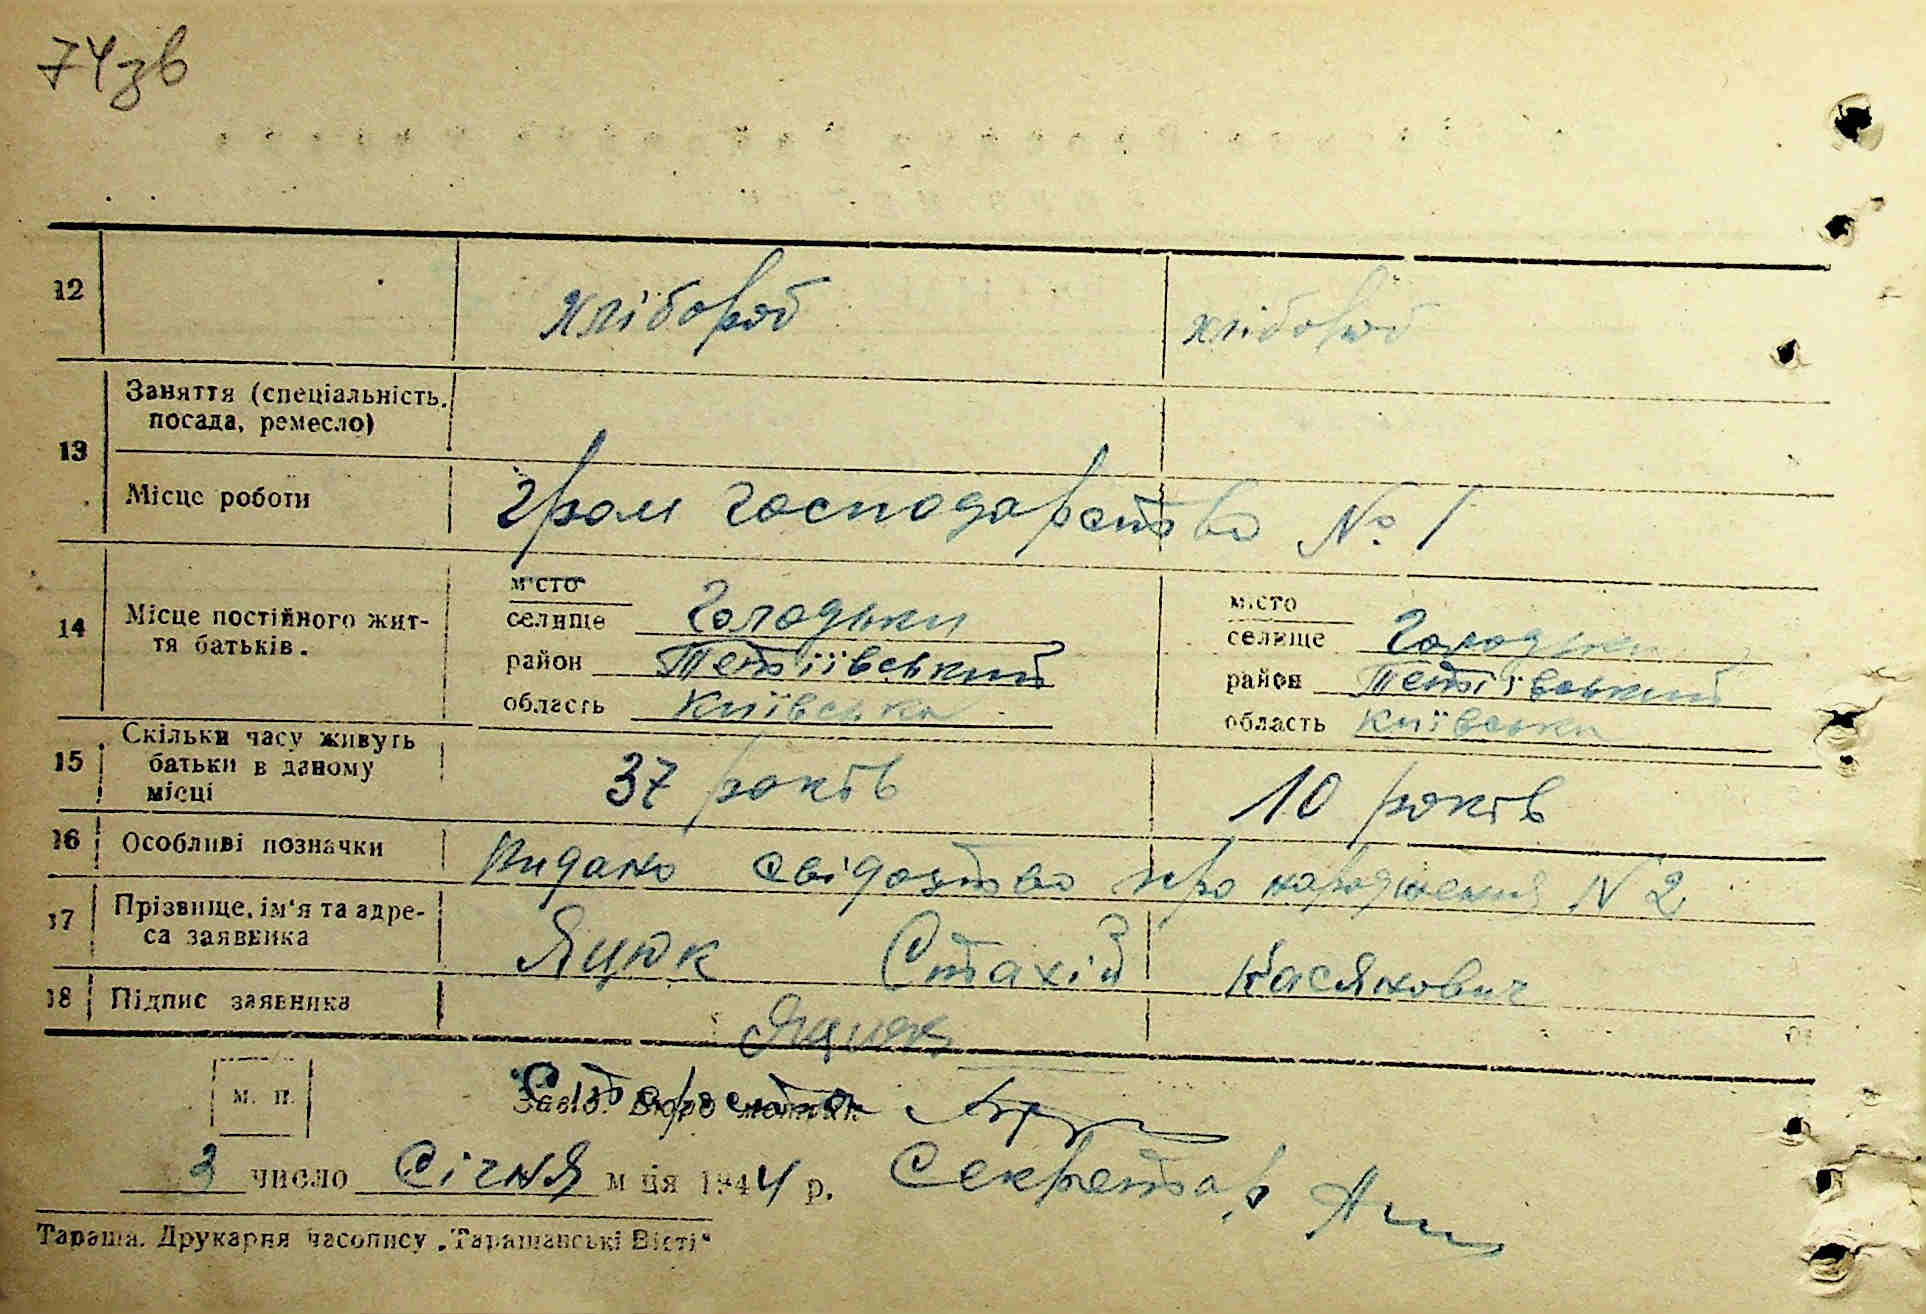 74 зв
12 хлібороб хлібороб
13 Заняття (спеціальність, посада, ремесло)
Місце роботи Гром господарство № 1
14 Місце постійного життя батьків.
місто
селище Голодьки
район Тетіївський
область Київська
місто
селище Голодьки
район Тетіївський
область Київська
15 Скільки часу живуть батьки в даному місці 37 років 10 років
16 Особливі позначки Видано свідоцтво про народження N 2
17 Прізвище, ім'я та адреса заявника Яцюк Стахій Касянович
18 Підпис заявника Яцюк
м. п.
Завід. Бюро Староста
3 число Січня м ця 1944 р. Секретар
Тараща. Друкарня часопису „Таращанські Вісті"